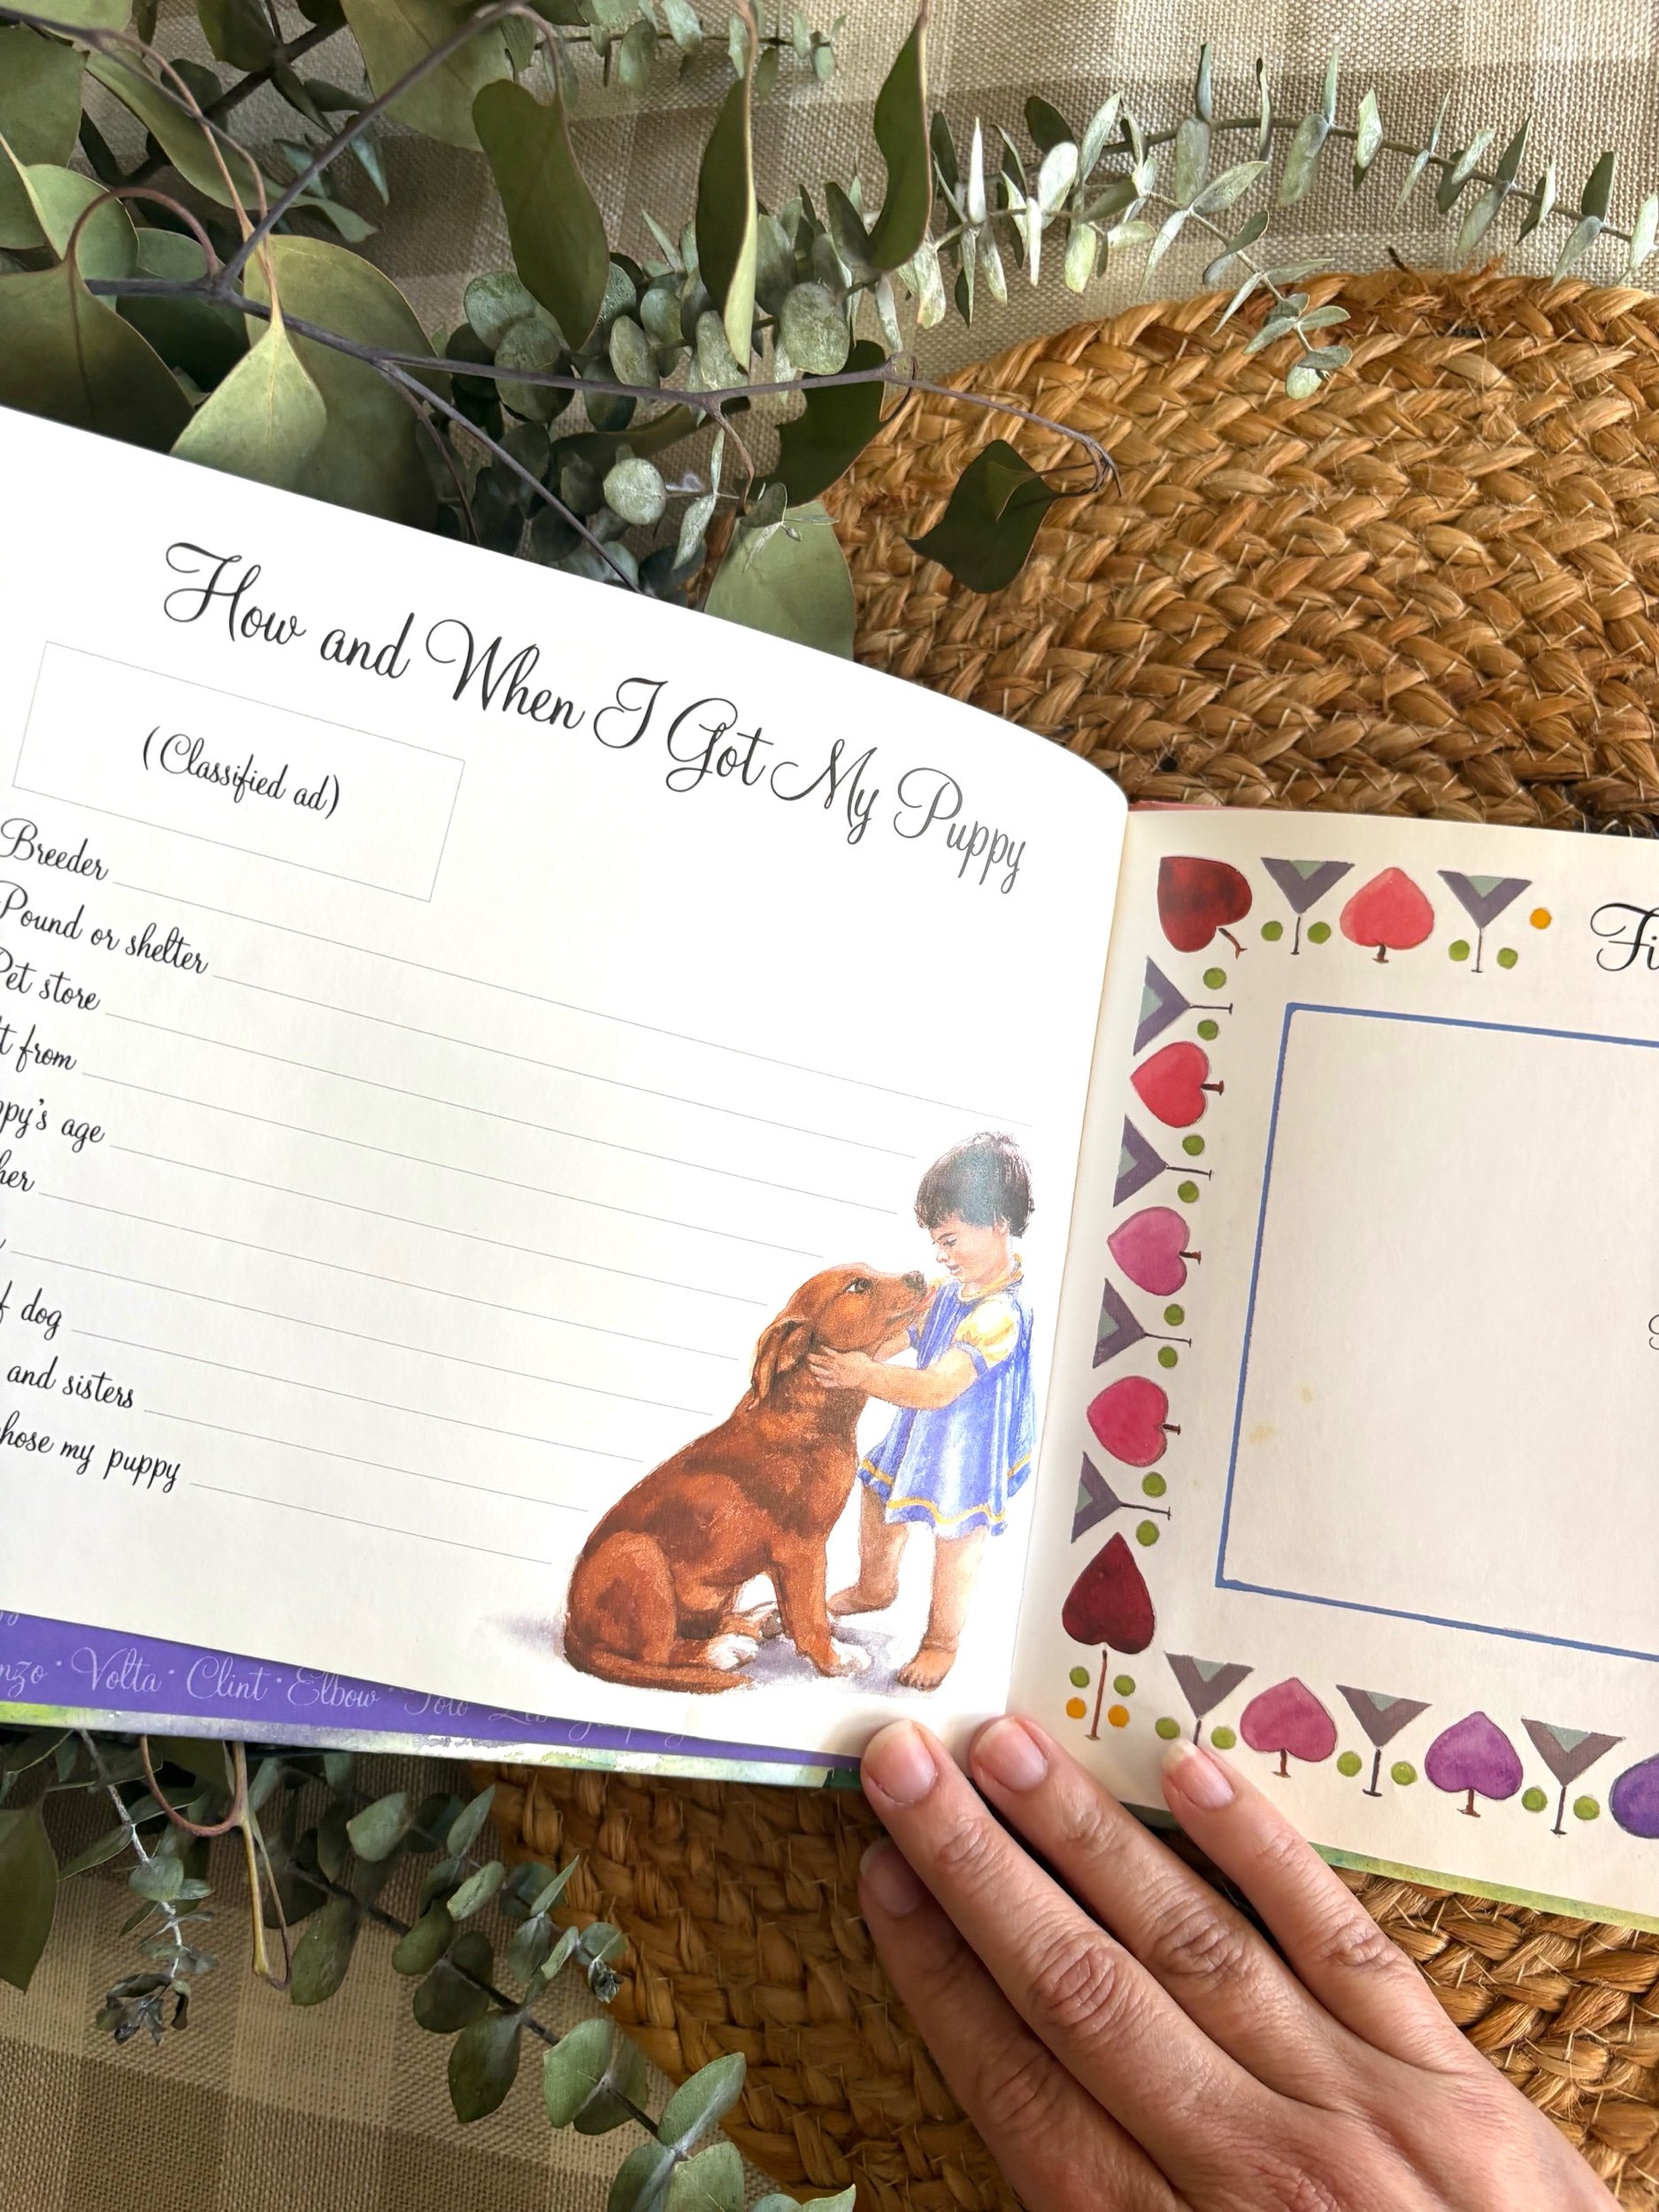 How and When I Got My Puppy
(Classified ad)
Breeder
Pound or shelter
Pet store
from
age
dog
and sisters
my puppy
Volta · Clint · Elbow · Toto